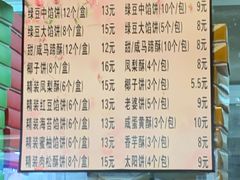 绿豆中馅饼12个(盒) 13元 绿豆中馅饼(10个/包) 9元
绿豆大馅饼8个(盒) 13元 绿豆大馅饼(5个/包) 8元
甜/咸马蹄酥(12个/盒) 12元 甜/咸马蹄酥(10个/包) 8元
椰子饼(8个/盒) 16元 凤梨酥(4个/包) 8元
凤梨酥(6个/盒) 15元 椰子饼(3个/包) 5.5元
精装红豆馅饼(6个/盒) 13元 老婆饼(5个/包) 9元
精装海苔馅饼(6个/盒) 15元 咸蛋黄酥(3个/包) 10元
精装蜜柚馅饼(6个/盒) 15元 香芋酥(3个/包) 8元
精装肉松酥饼(6个/盒) 15元 太阳饼(4个/包) 9元